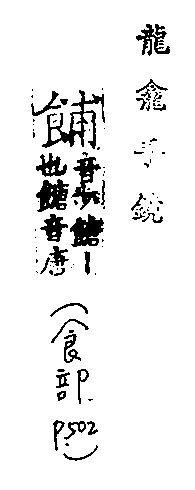 龍龕手鏡
餔
音步餹丨
也餹音唐
(食部 P.502)